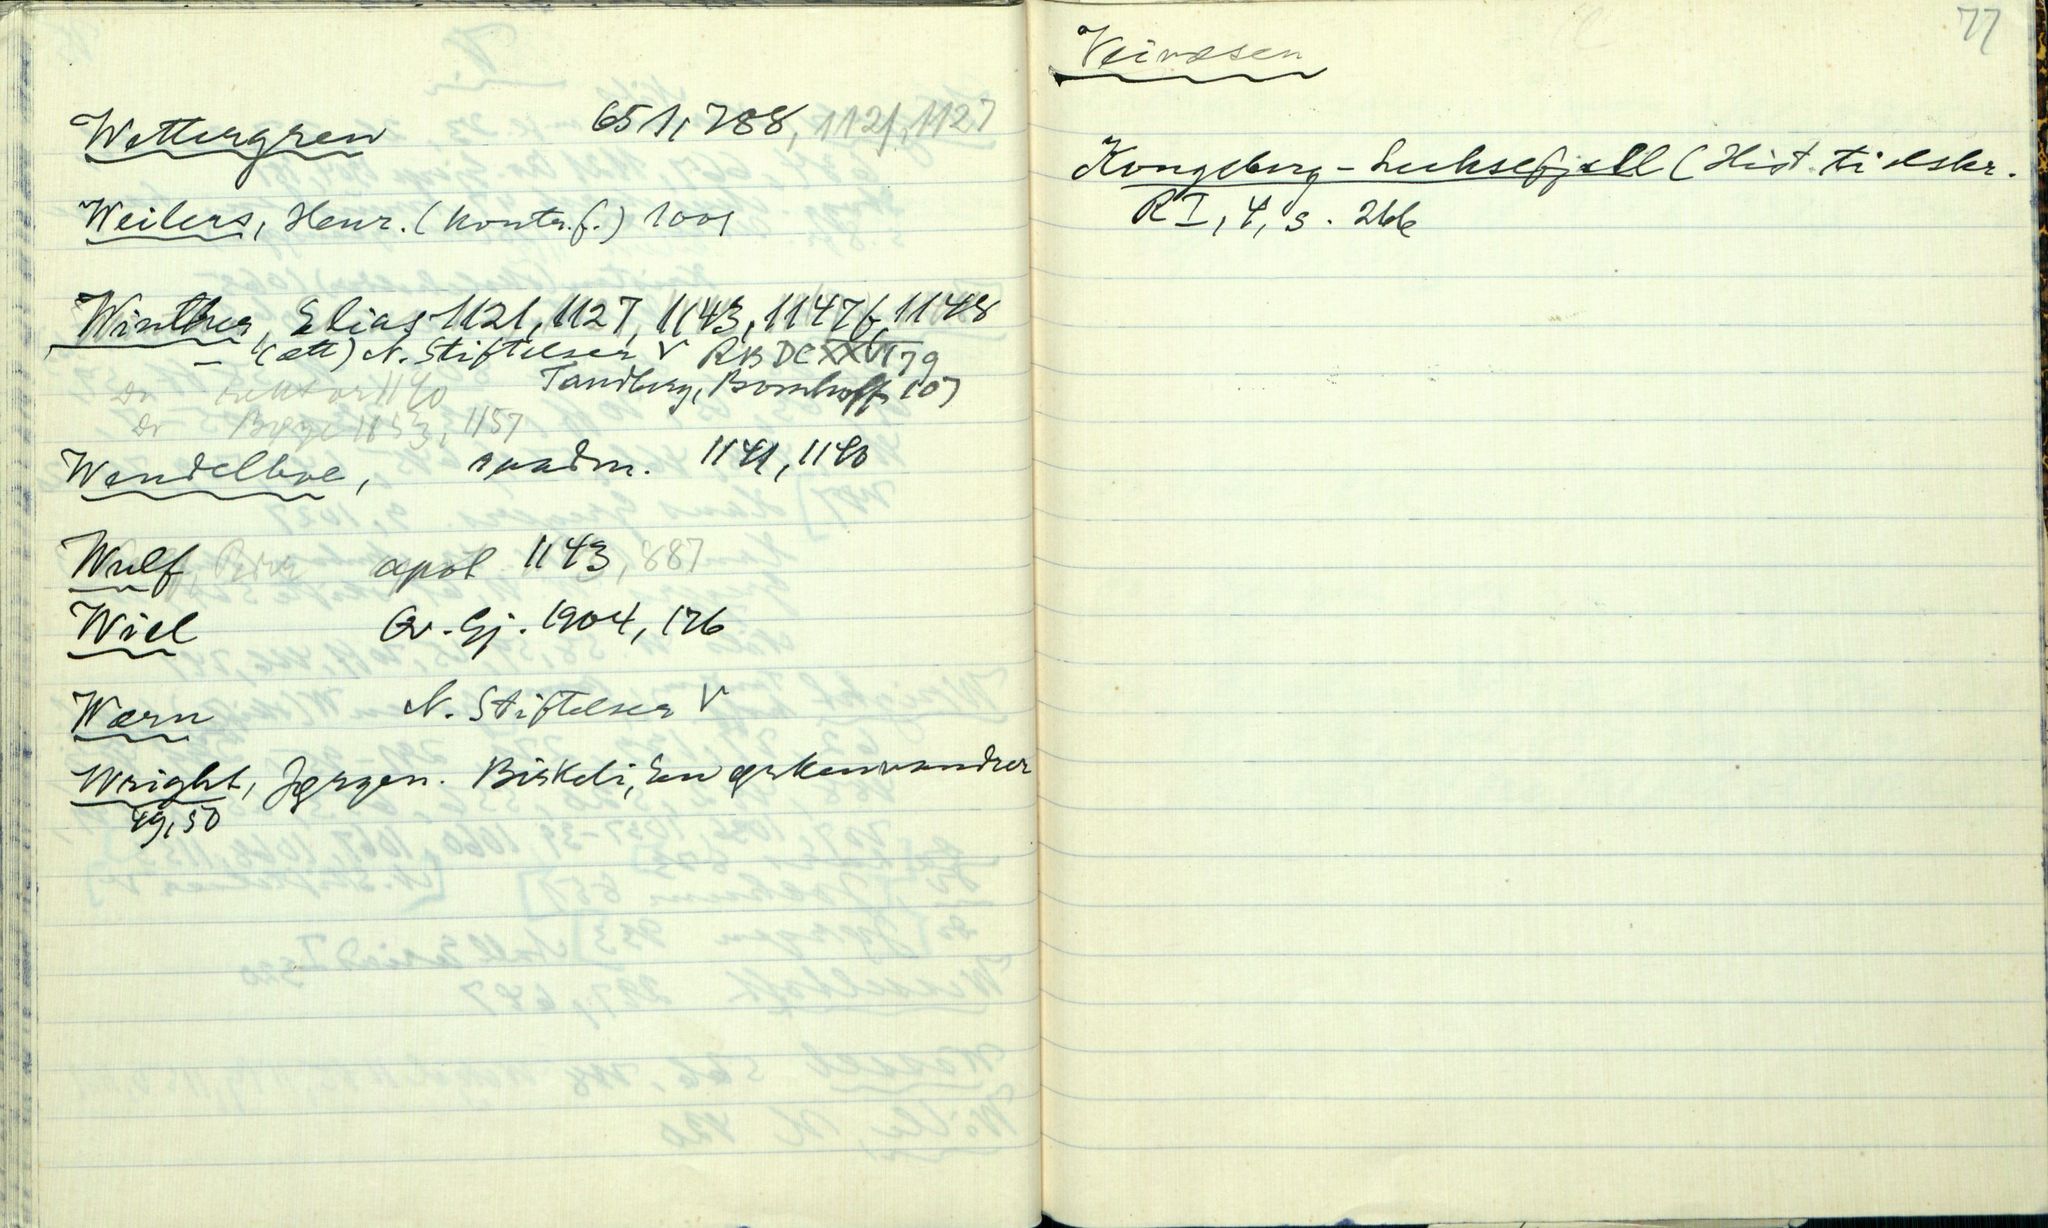 Wettergren 651, 788, 1121, 1127
Weilers, Henr. (kontr.f.) 1001
Winther, Elias 1121, 1127, 1143, 1147f, 1148
— (ætt) N. Stiftelser V RB DCXXVI 79
Do rektor 1140 Tandberg, Bomhoff 107
Do Børge 1153, 1157
Wendelboe, raadm. 1141, 1140
Wulf, Peder apot 1143, 887
Wiel Qv. Gj. 1904, 176
Wærn N. Stiftelser V
Wright, Jørgen. Birkeli, En ørkenvandrer
49, 50
77
Veivæsen
Kongsberg - (Hist. tidskr.
R I, 4, s. 266